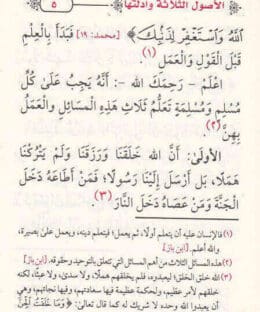 الأصول الثلاثة وأدلتها
٥
اللهُ وَاسْتَغْفِرْ لِذَنبِكَ﴾ [محمد: ١٩] فَبَدَأَ بِالْعِلْمِ
قَبْلَ القَوْلِ وَالعَمَلِ (١)
اعْلَمْ - رَحِمَكَ الله -: أَنَّهُ يَجِبُ عَلَى كُلِّ
مُسْلِمٍ وَمُسْلِمَةٍ تَعَلُّمُ ثَلاثِ هَذِهِ المَسَائِلِ وَالعَمَلُ
بِهِنَّ (٢)
الأُولَى: أَنَّ الله خَلَقَنَا وَرَزَقَنَا وَلَمْ يَتْرُكْنَا
هَمَلًا، بَلْ أَرْسَلَ إِلَيْنَا رَسُولًا؛ فَمَنْ أَطَاعَهُ دَخَلَ
الجَنَّةَ وَمَنْ عَصَاهُ دَخَلَ النَّارَ (٣)
(١) فالإنسان عليه أن يتعلم أولًا، ثم يعمل؛ فيتعلم دينه، ويعمل على بصيرة،
والله أعلم. [ابن باز]
(٢) هذه المسائل الثلاث من أهم المسائل التي تتعلق بالتوحيد وحقوقه. [ابن باز]
(٣) الله خلق الخلق؛ ليعبدوه، فلم يخلقهم هملًا، ولا سدى، ولا عبثًا، لكنه
خلقهم لأمر عظيم، ولحكمة عظيمة فيها سعادتهم، وفيها نجاتهم، وهي
أن يعبدوا الله وحده لا شريك له كما قال تعالى: ﴿ وَمَا خَلَقْتُ الْجِنَّ